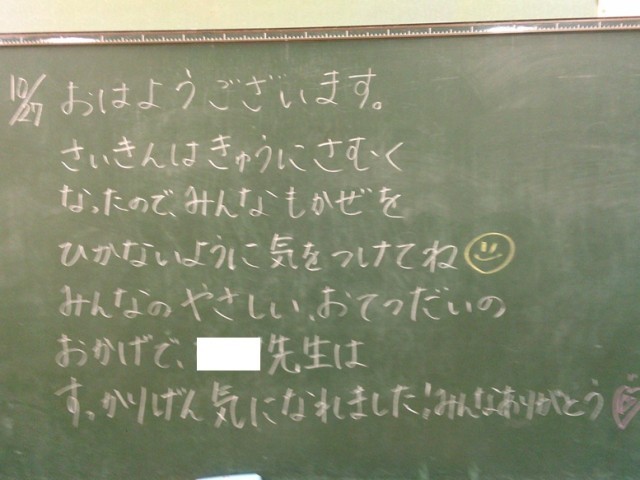 10/27 おはようございます。
さいきんはきゅうにさむく
なったので、みんなもかぜを
ひかないように気をつけてね
みんなのやさしい、おてつだいの
おかげで、先生は
すっかりげん気になれました!みんなありがとう